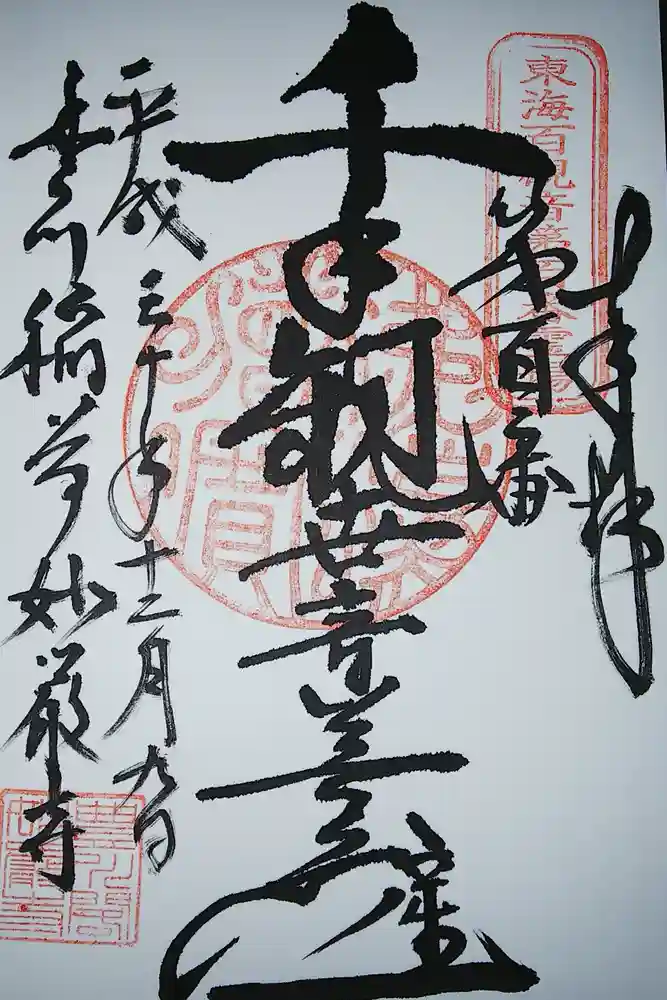 奉拝
東海百観音第百番霊場
第百番
千手観世音菩薩
平成三十年十二月九日
豊川稲荷妙厳寺